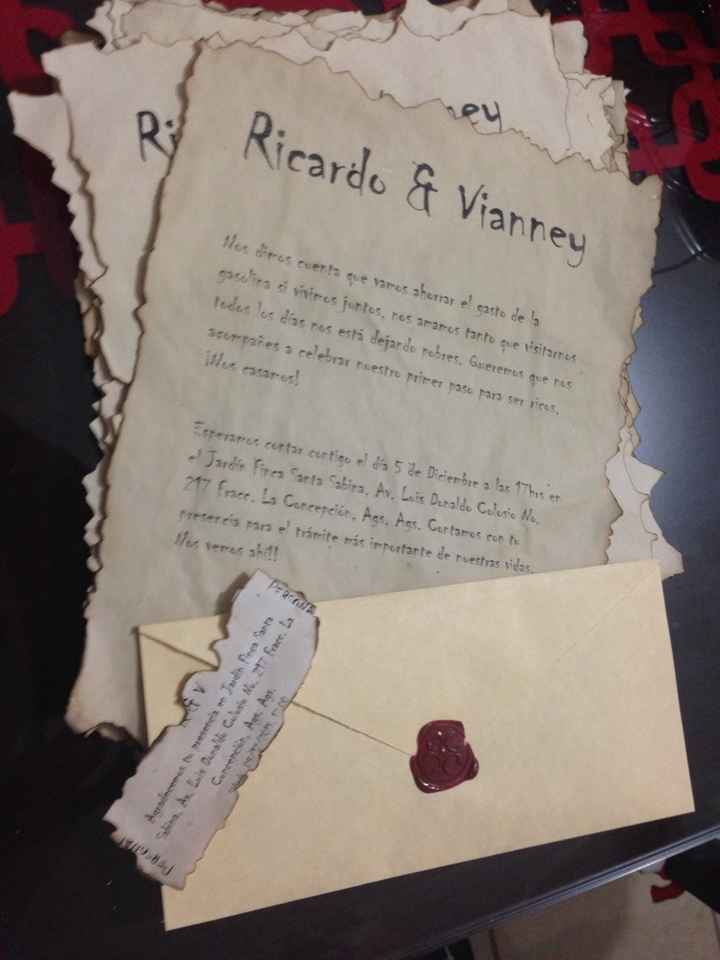 Ricardo & Vianney
Nos dimos cuenta que vamos ahorrar el gasto de la
gasolina si vivimos juntos, nos amamos tanto que visitarnos
todos los días nos está dejando pobres. Queremos que nos
acompañes a celebrar nuestro primer paso para ser ricos.
¡Nos casamos!
Esperamos contar contigo el día 5 de Diciembre a las 17hrs en
el Jardín Finca Santa Sabina, Av. Luis Donaldo Colosio No.
217 Fracc. La Concepción, Ags, Ags. Contamos con tu
presencia para el trámite más importante de nuestras vidas.
Nos vemos ahí!!
Ri
nney
Agradecemos tu presencia en Jardín Finca Santa
Sabina, Av. Luis Donaldo Colosio No. 217 Fracc. La
Concepción, Ags, Ags.